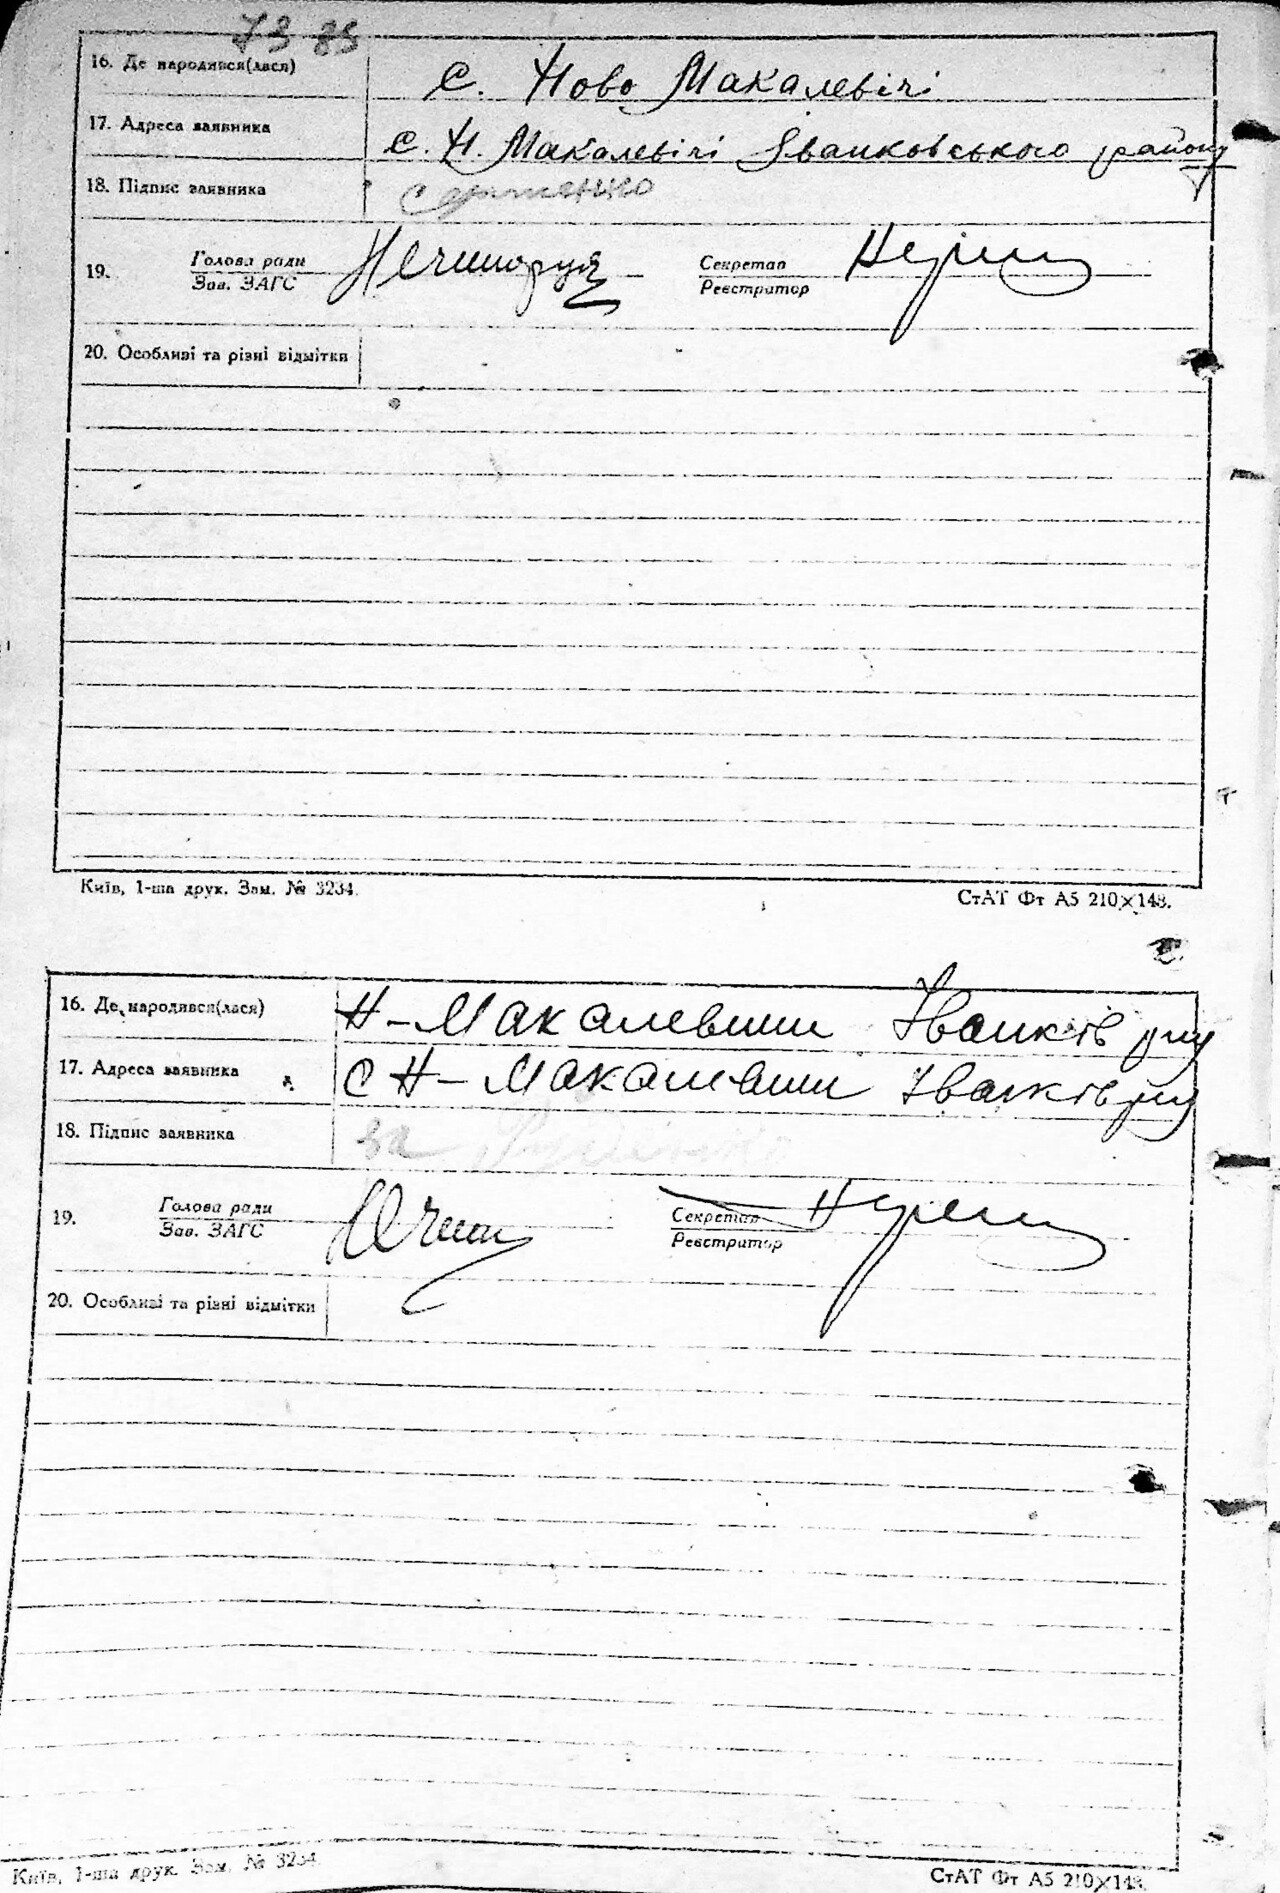 73 83
16. Де народився(лася) с. Ново Макалевічі
17. Адреса заявника с. Н. Макалевічі Іванковського району
18. Підпис заявника
19. Голова ради Секретар
Зав. ЗАГС Реєстратор
20. Особливі та різні відмітки
Київ, 1-ша друк. Зам. № 3234. СтАТ Фт А5 210×148.
16. Де народився(лася) Н-Макалевичи Іванків р-ну
17. Адреса заявника с Н-Макалевичи Іванків р-ну
18. Підпис заявника за
19. Голова ради Секретар
Зав. ЗАГС Реєстратор
20. Особливі та різні відмітки
Київ, 1-ша друк. Зам. № 3234 СтАТ Фт А5 210×148.